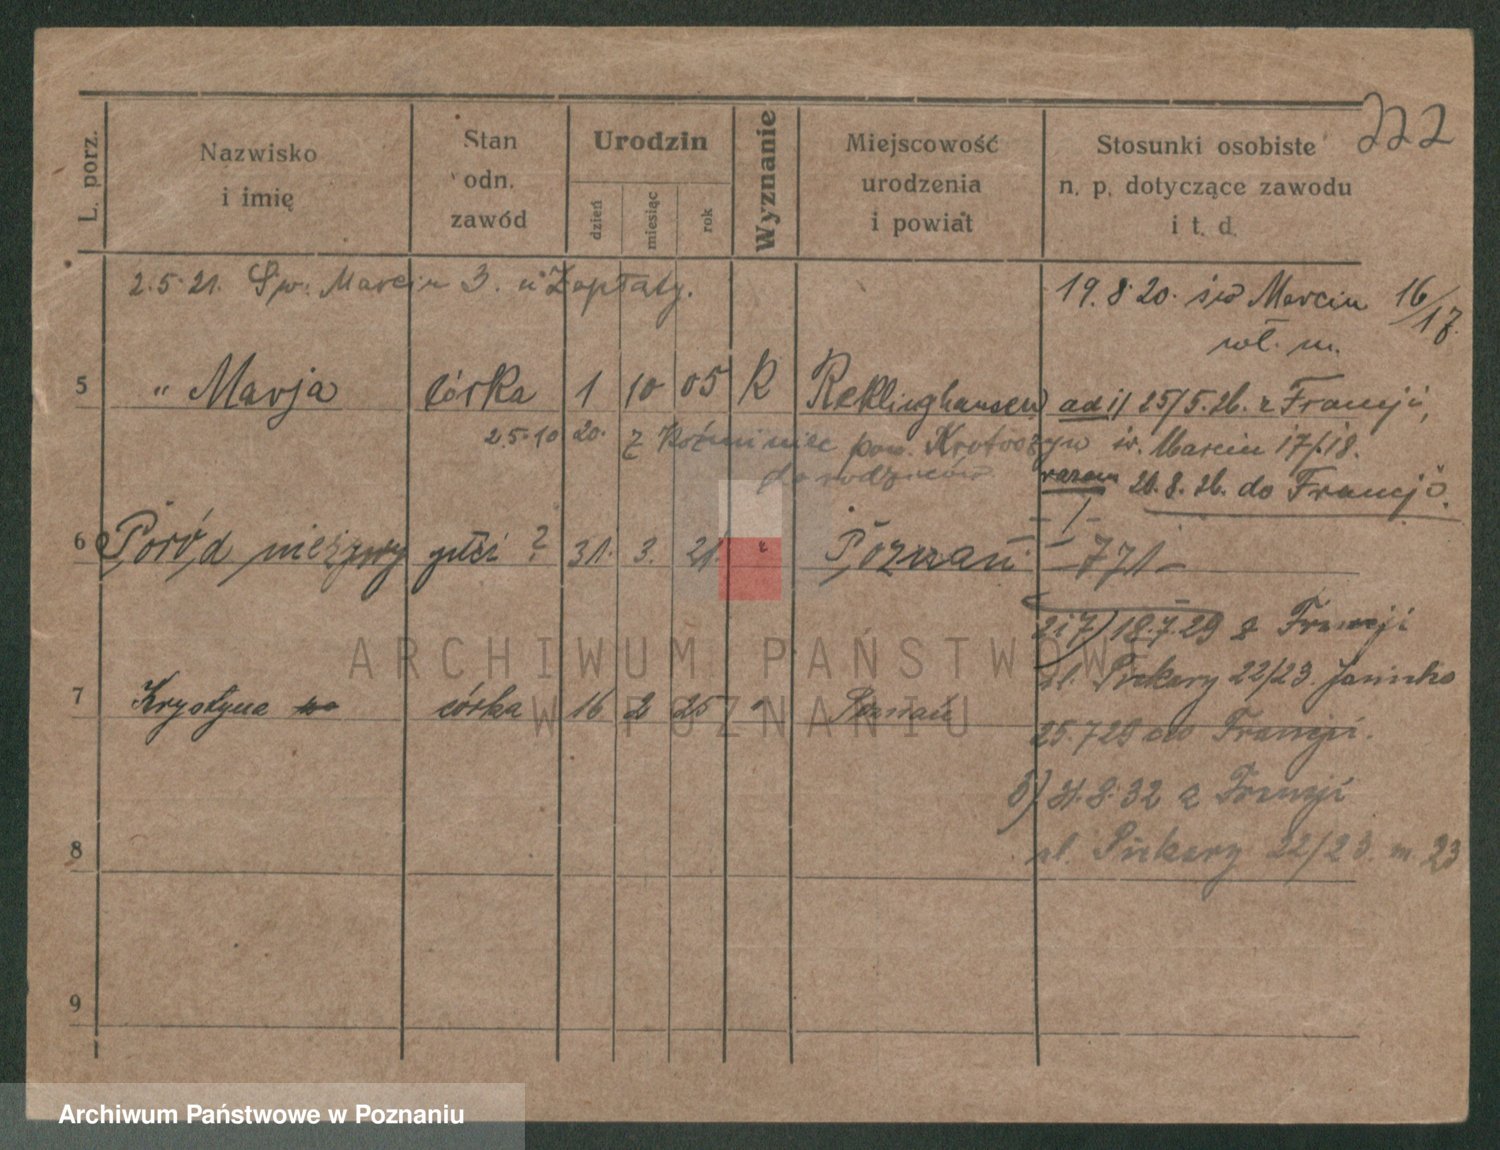 222
L. porz.
Nazwisko
i imię
Stan
odn.
zawód
Urodzin
dzień
miesiąc
rok
Wyznanie
Miejscowość
urodzenia
i powiat
Stosunki osobiste
n. p. dotyczące zawodu
i t. d.
2.5.21. Św. Marcin 3. u Zapłaty.
19.8.20. św Marcin 16/17.
wł. m.
5 " Marja córka 1 10 05 R Reklinghausen
ad i) 25/5.26. z Francji,
25.10 20. z Koźminiec pow. Krotoszyn
św. Marcin 17/18.
do rodziców
razem 26.8.26. do Francji.
6 Poród nieżywy płci ? 31. 3. 21. " Poznań
-1-
-771-
2i7) 18.7.29 z Francji
ul. Piekary 22/23.
7 Krystyna córka 16 2 25 " Poznań
25.7.29 do Francji.
8.32 z Francji
ul. Piekary 22/23. m. 23
8
9
ARCHIWUM PAŃSTWOWE
W POZNANIU
Archiwum Państwowe w Poznaniu